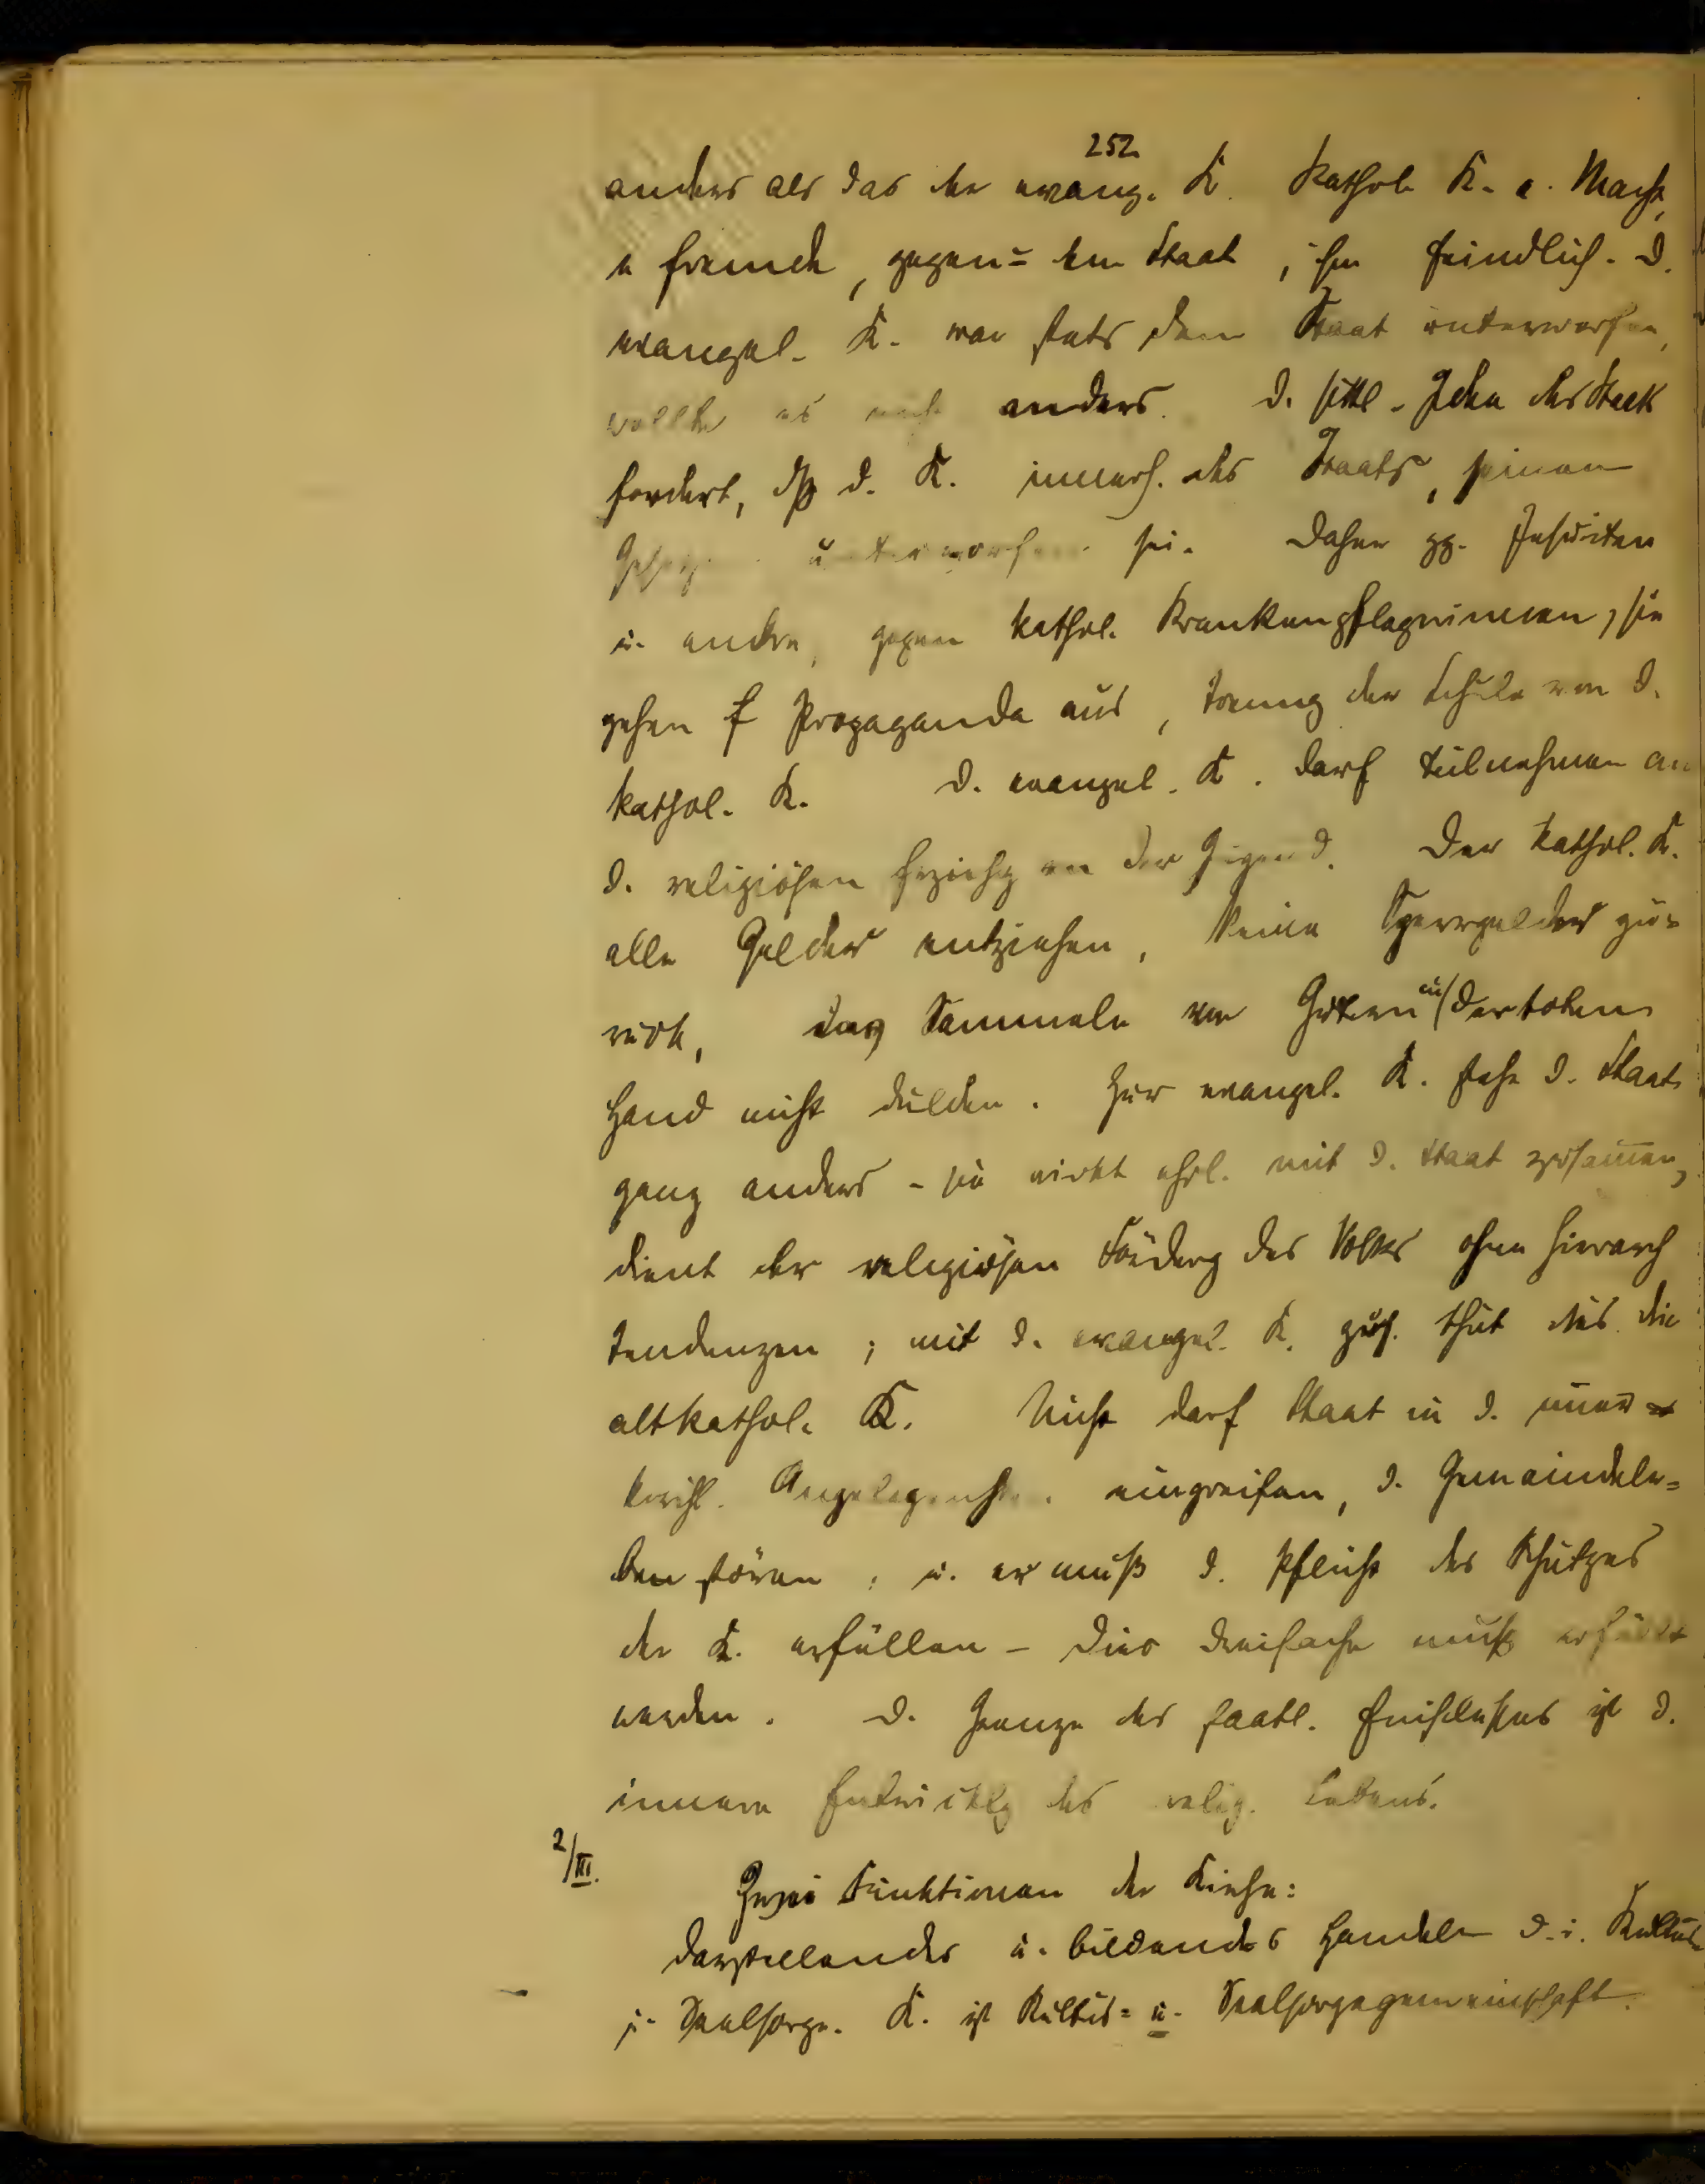 252
anders als das der evang. K. Kathol. K. e. Macht,
e fremde, gegen= dem Staat, ihm feindlich. D.
evangel. K. war stets dem Staat unterworfen,
wollte es nicht anders. D. sittl. Idee des Staats
fordert, dß d. K. innerh. des Staats, seinen
Gesetzen unterworfen sei. Daher gg. Jesuiten
u. andre, gegen kathol. Krankenpflegerinnen, sie
gehen f Propaganda aus, Trennung der Schule von d.
kathol. K. D. evangel. K. darf teilnehmen an
d. religiösen Erziehg an der Jugend. Der kathol. K.
alle Gelder entziehen, keine Sperrgelder zu=
rück, das Sammeln von Gütern in/der toten
Hand nicht dulden. Zur evangel. K. steht d. Staat
ganz anders - sie wirkt ehrl. mit d. Staat zusammen,
dient der religiösen Förderg des Volkes ohne hierarch
Tendenzen; mit d. evangel. K. zus. thut dies die
altkathol. K. Nicht darf Staat in d. inner=
kirchl. Angelegenh. eingreifen, d. Gemeindele=
ben stören, u. er muß d. Pflicht des Schutzes
der K. erfüllen - dies dreifache muß erfüllt
werden. D. Grenze des staatl. Einflusses ist d.
innere Entwicklg des relig. Lebens.
2/III. Zwei Funktionen der Kirche:
darstellendes u. bildendes Handeln d. i. Kultus
u. Seelsorge. K. ist Kultus= u. Seelsorgegemeinschaft.